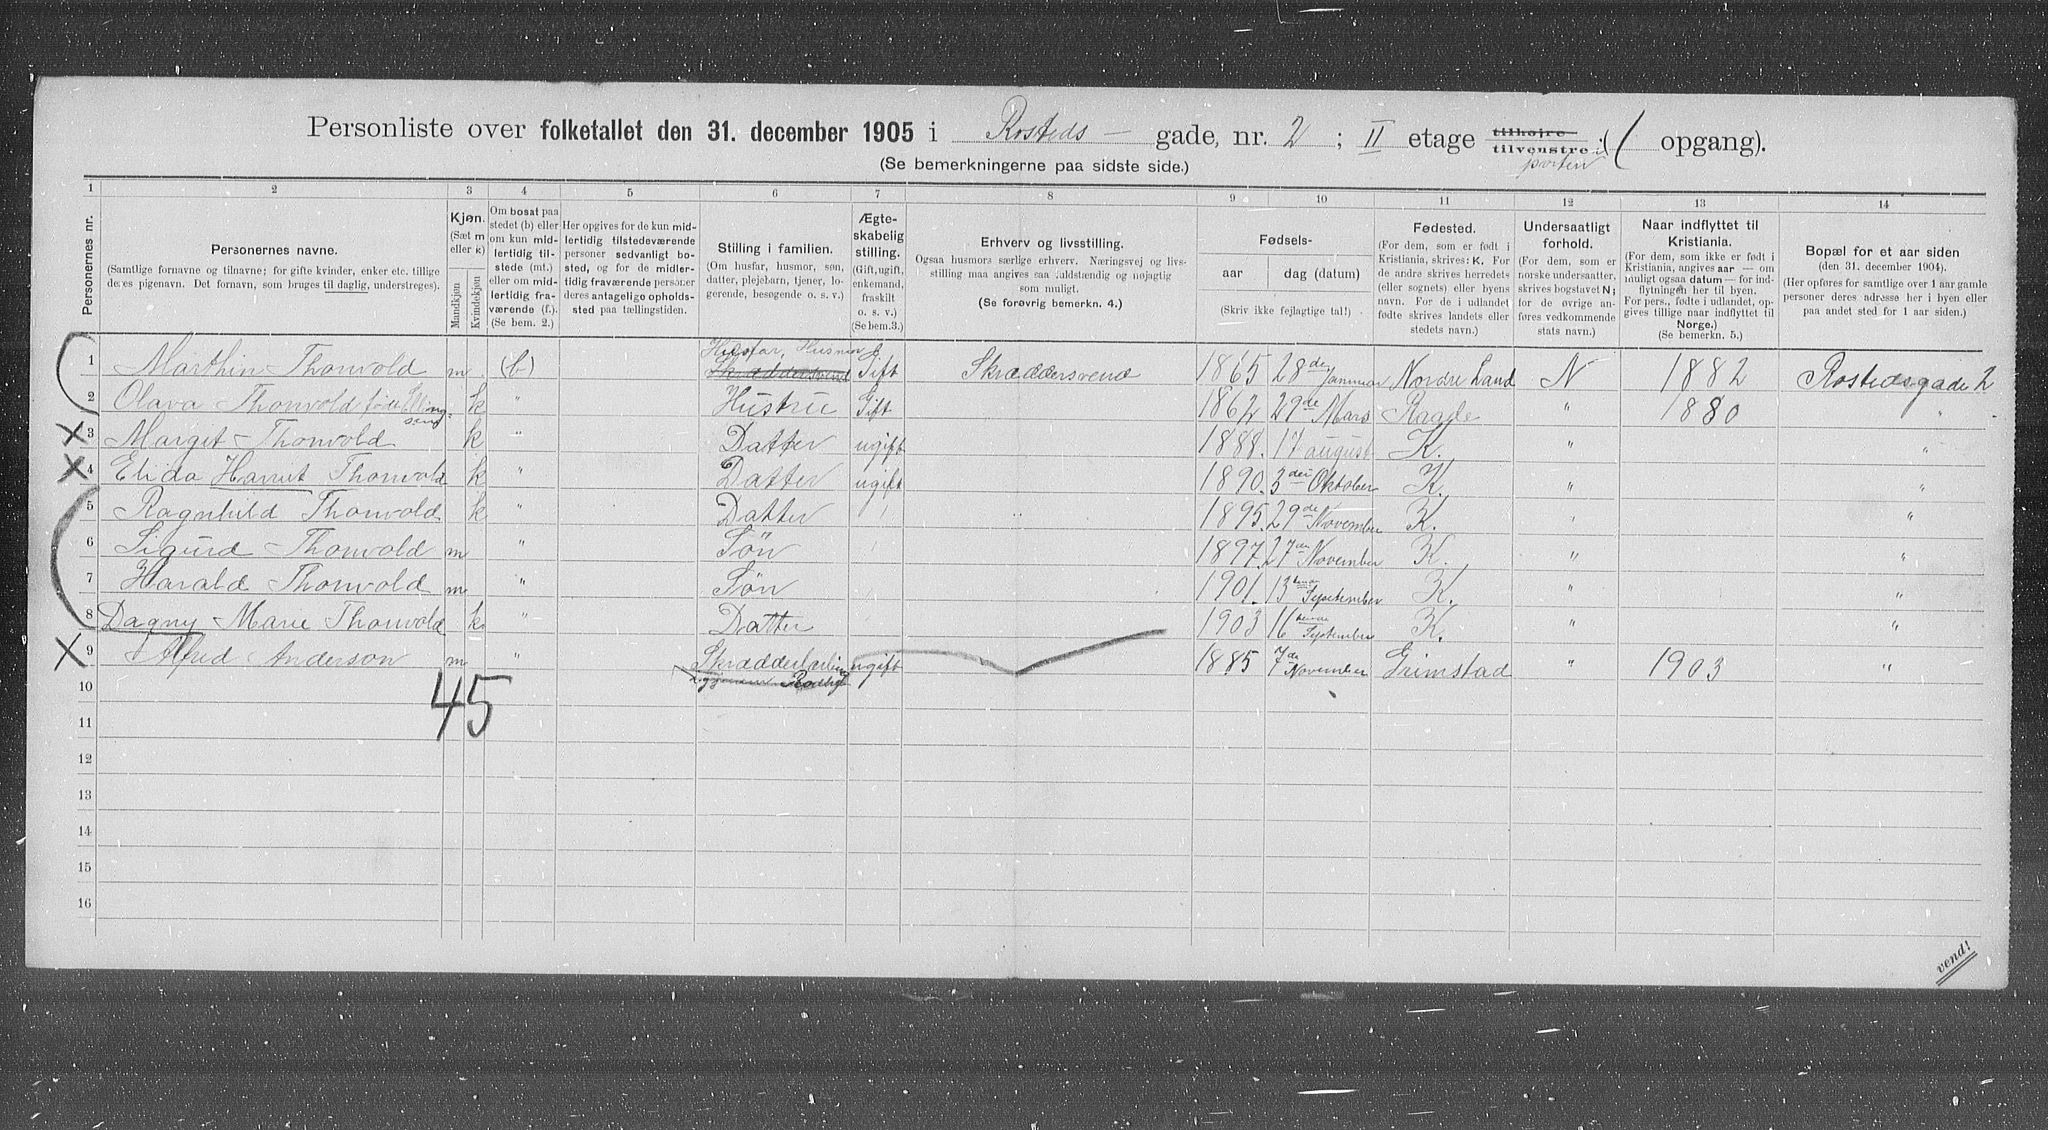 Personliste over folketallet den 31. december 1905 i Rosteds - gade, nr. 2 ; II etage tilhøjre tilvenstre porten ;( opgang).
(Se bemerkningerne paa sidste side.)
1 2 3 4 5 6 7 8 9 10 11 12 13 14
Personernes nr.
Personernes navne.
(Samtlige fornavne og tilnavne; for gifte kvinder, enker etc. tillige
deres pigenavn. Det fornavn, som bruges til daglig, understreges).
Kjøn.
(Sæt m
eller k)
Mandkjøn
Kvindekjøn
Om bosat paa
stedet (b) eller
om kun mid-
lertidig til-
stede (mt.)
eller om mid-
lertidig fra-
værende (f.).
(Se bem. 2.)
Her opgives for de kun mid-
lertidig tilstedeværende
personer sedvanlig bo-
sted, og for de midler-
tidig fraværende personer
deres antagelige opholds-
sted paa tællingstiden.
Stilling i familien.
(Om husfar, husmor, søn,
datter, plejebarn, tjener, lo-
gerende, besøgende o. s. v.)
Ægte-
skabelig
stilling.
(Gift, ugift,
enkemand,
fraskilt
o. s. v.)
(Se bem.3.)
Erhverv og livsstilling.
Ogsaa husmors særlige erhverv. Næringsvej og livs-
stilling maa angives saa fuldstændig og nøjagtig
som muligt.
(Se forøvrig bemerkn. 4.)
Fødsels-
aar dag (datum)
(Skriv ikke fejlagtige tal!)
Fødested.
(For dem, som er født i
Kristiania, skrives: K. For
de andre skrives herredets
(eller sognets) eller byens
navn. For de i udlandet
fødte skrives landets eller
stedets navn.)
Undersaatligt
forhold.
(For dem, som er
norske undersaatter,
skrives bogstavet N;
for de øvrige an-
føres vedkommende
stats navn.)
Naar indflyttet til
Kristiania.
(For dem, som ikke er født i
Kristiania, angives aar — om
muligt ogsaa datum — for ind-
flytningen her til byen.
For pers., fødte i udlandet, op-
gives tillige naar indflyttet til
Norge.)
(Se bemerkn. 5.)
Bopæl for et aar siden
(den 31. december 1904).
(Her opføres for samtlige over 1 aar gamle
personer deres adresse her i byen eller
paa andet sted for 1 aar siden.)
1 Marthin Thorvold m (b) Husfar, Husmor Skræddersvend Gift Skræddersvend 1865 28de Januar Nordre Land N 1882 Rostedsgade 2
2 Olava Thorvold født Elling- k " Hustru Gift 1862 29de Mars Raade " 1880 "
send
3 Marget Thorvold k " Datter ugift 1888. 17 august K. " "
4 Elida Harriet Thorvold k " Datter ugift 1890. 3die Oktober K. " "
5 Ragnhild Thorvold k " Datter 1895. 29de November K. " "
6 Sigurd Thorvold m " Søn 1897. 27de November K. " "
7 Harald Thorvold m " Søn 1901. 13 September K. " "
8 Dagny Marie Thorvold k " Datter 1903 16 September K. " "
9 Alfred Anderson m " Skrædderlærling ugift 1885 7de November Grimstad " 1903 "
10
45
11
12
13
14
15
16
vend!